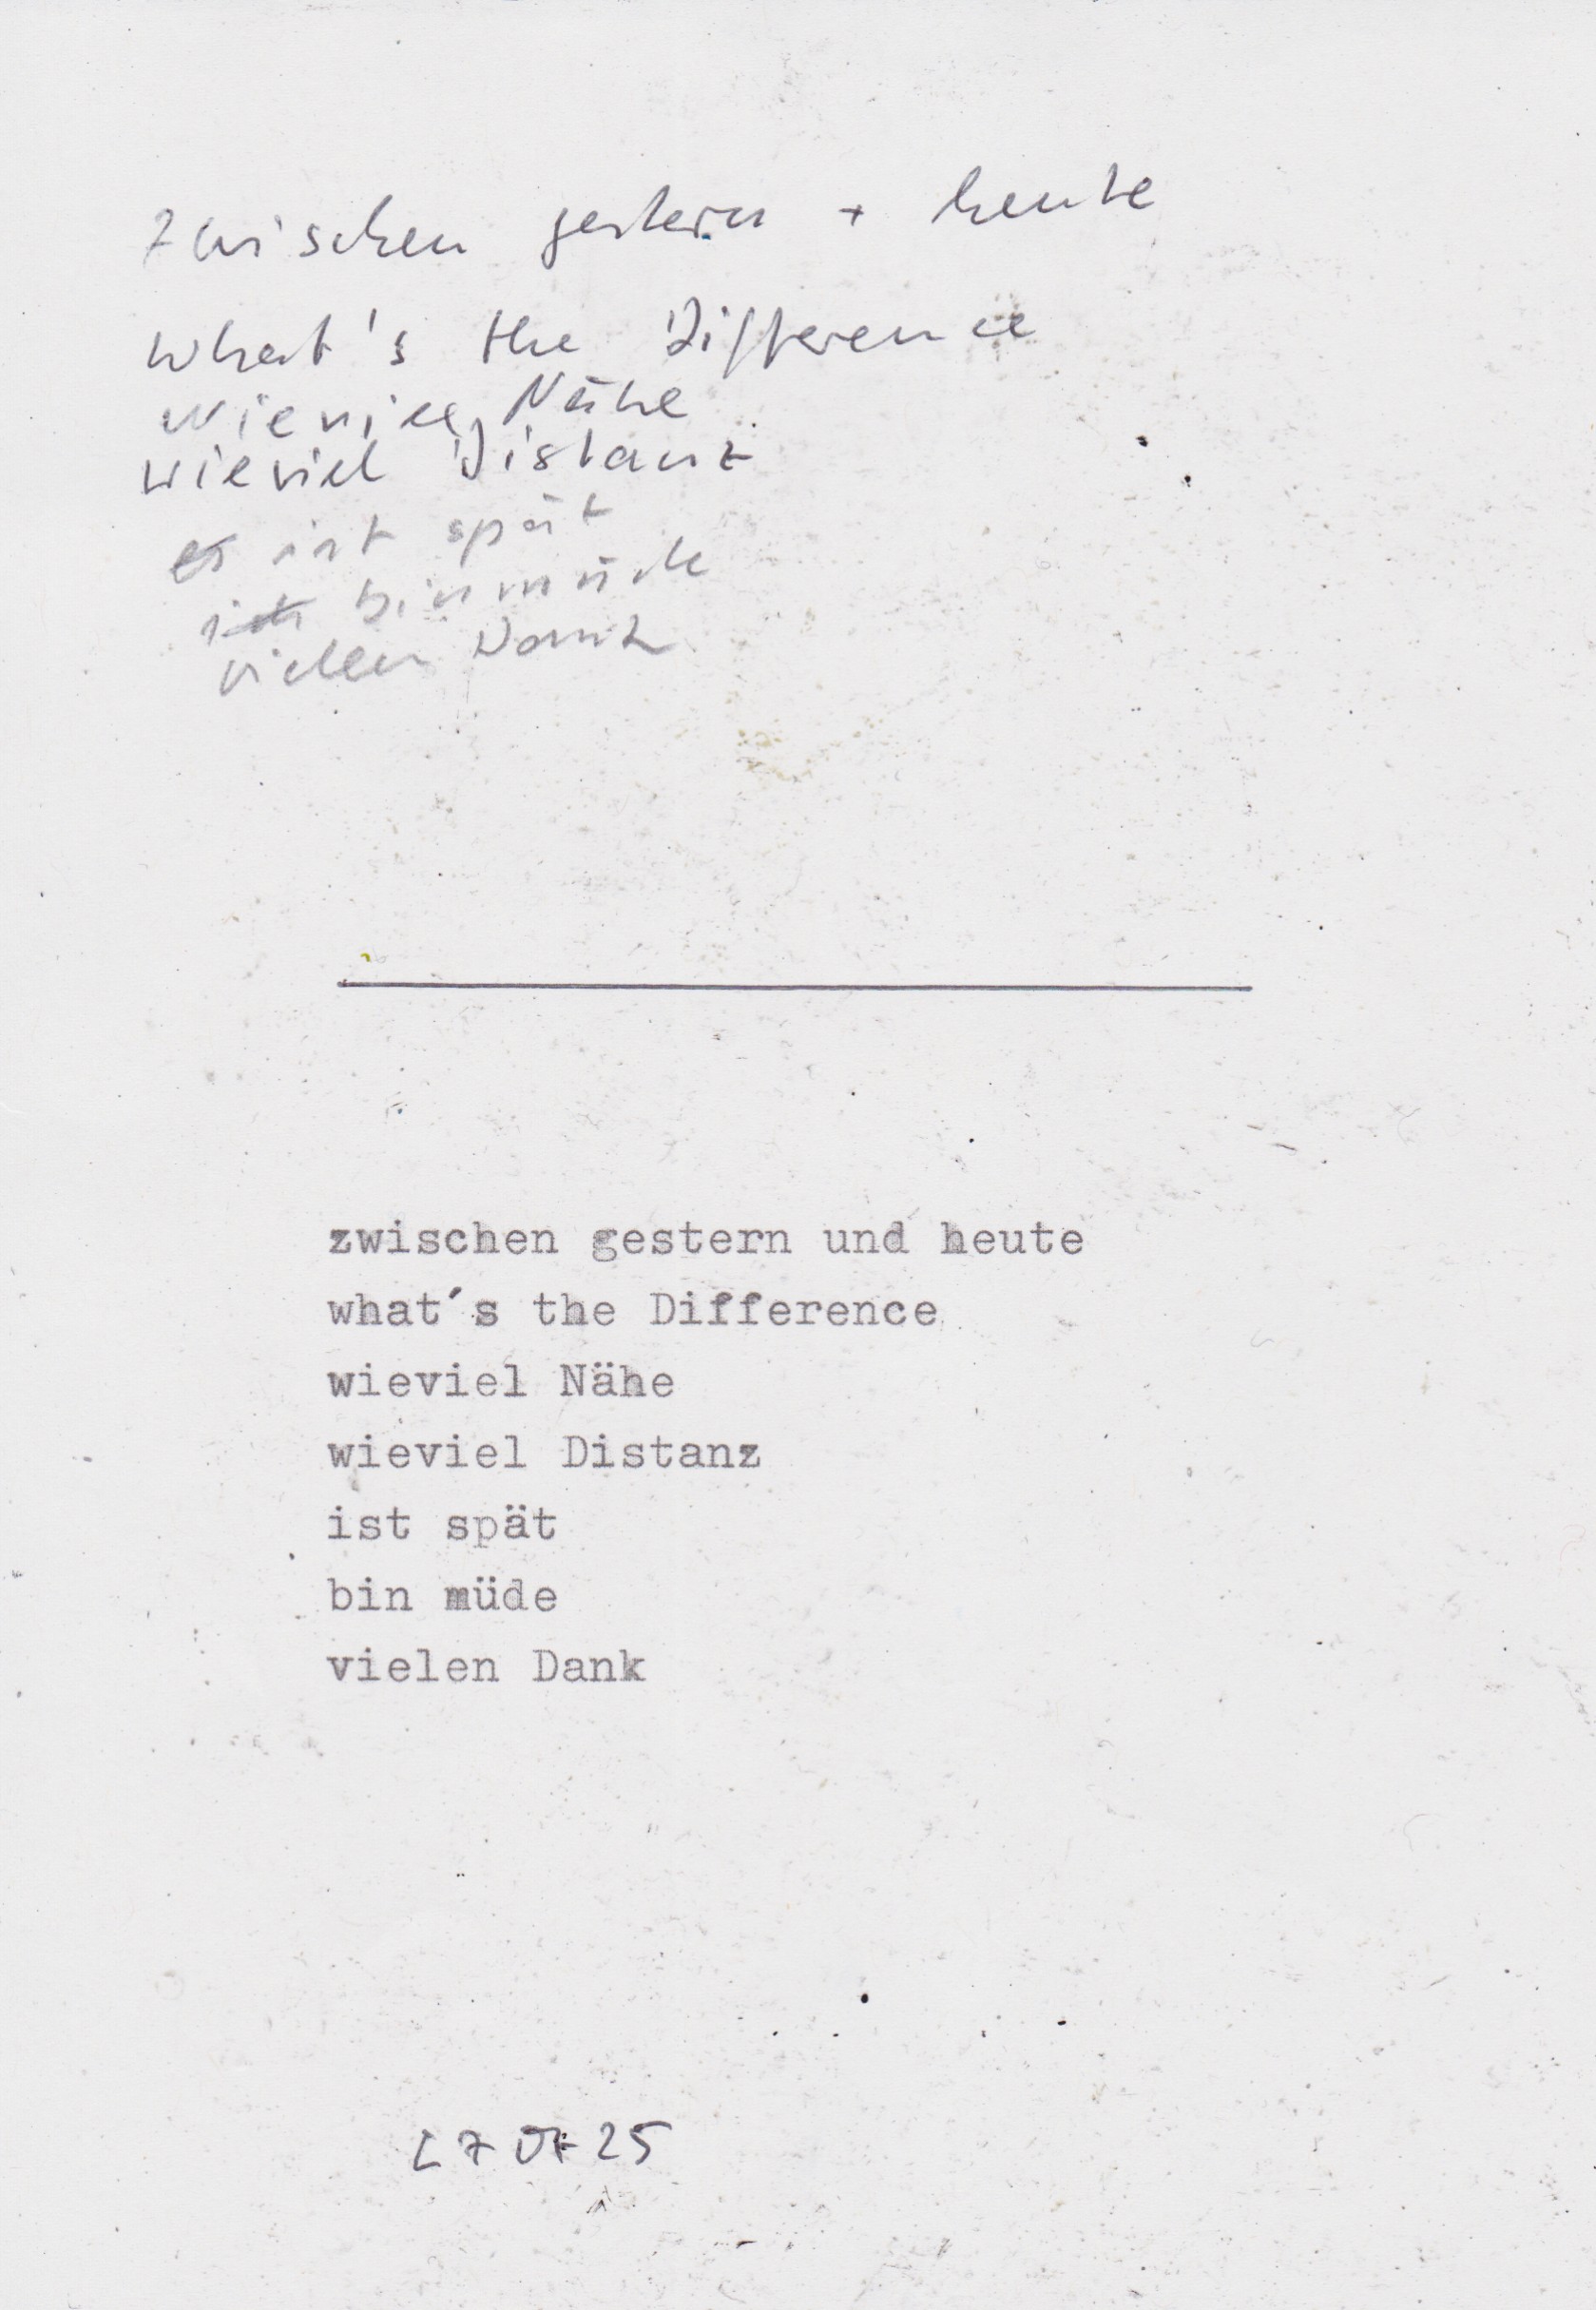 zwischen gestern + heute
what's the Difference
wieviel Nähe
wieviel Distanz
es ist spät
ich bin müde
vielen Dank
zwischen gestern und heute
what´s the Difference
wieviel Nähe
wieviel Distanz
ist spät
bin müde
vielen Dank
27 07 25